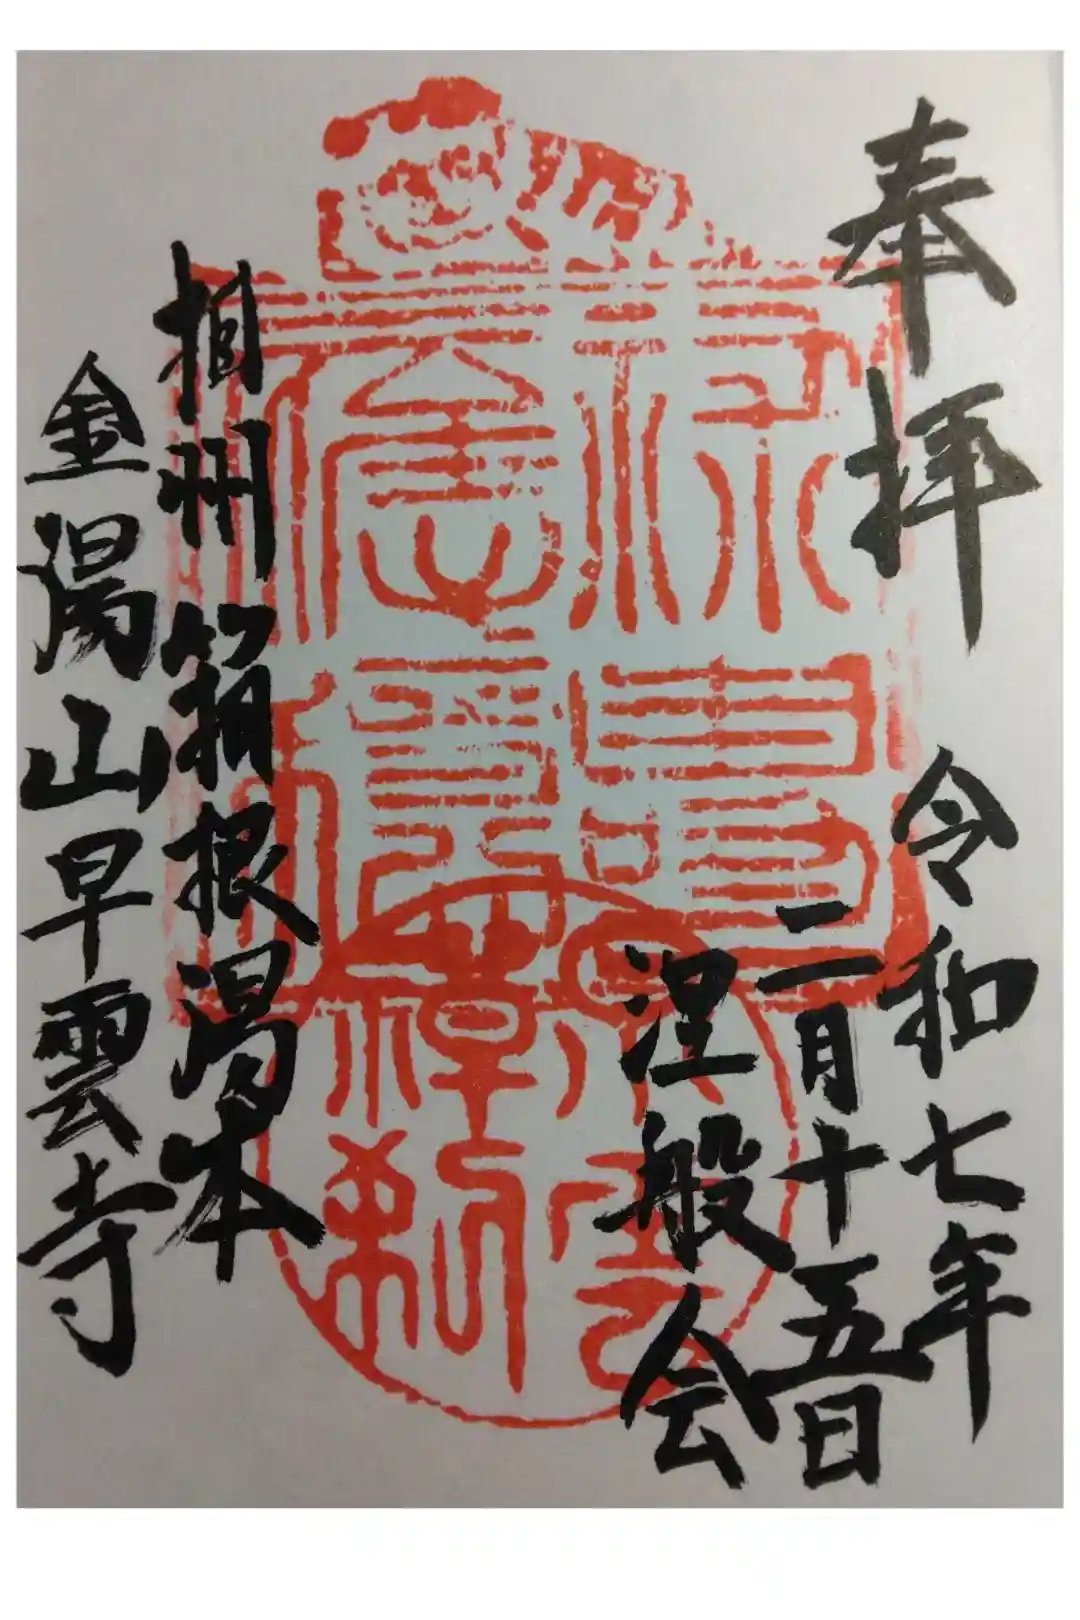 奉拝
令和七年
二月十五日
涅般会
祿壽
應穏
相州箱根湯本
金湯山早雲寺